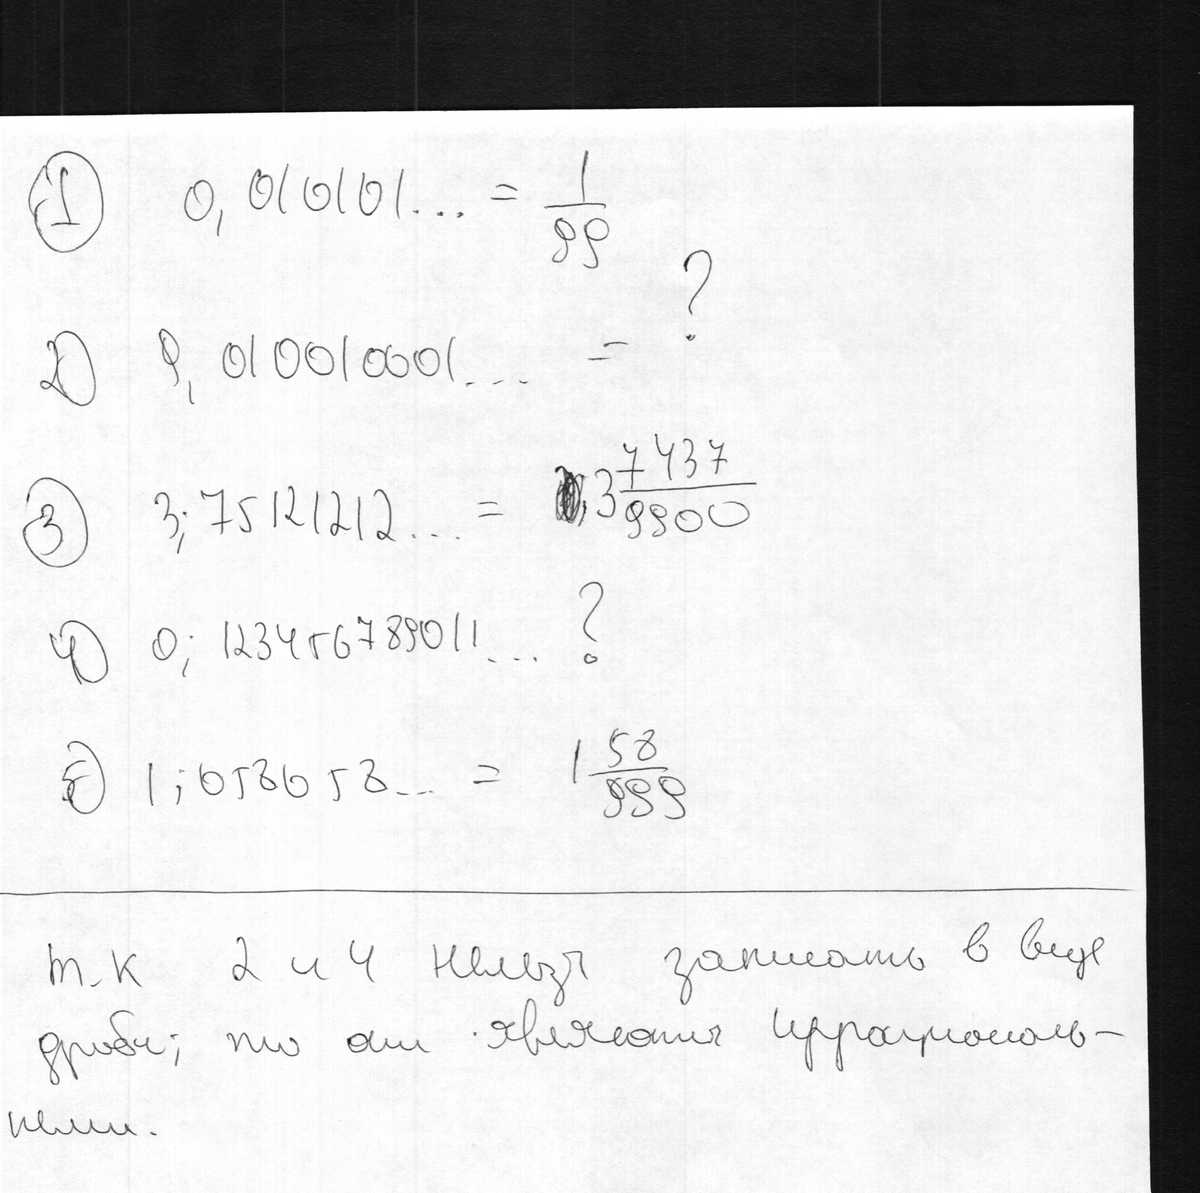 1 0,010101... = 1/99
2) 9,010010001... = ?
3 3,75121212... = 3 7437/9900
4) 0,12345678901 1... ?
5) 1,058058... = 1 58/999
т.к 2 и 4 нельзя записать в виде
дроби, то они являются иррациональ-
ными.